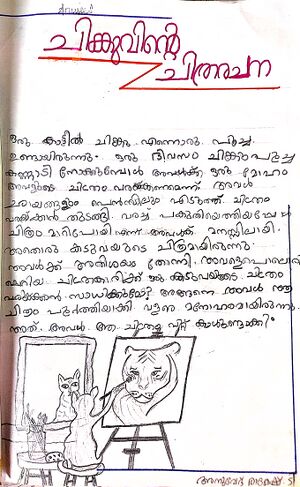 ചിക്കുവിന്റെ
ചിത്രരചന
ഒരു കാട്ടിൽ ചിക്കു എന്നൊരു പൂച്ച
ഉണ്ടായിരുന്നു. ഒരു ദിവസം ചിക്കുപൂച്ച
കണ്ണാടി നോക്കുമ്പോൾ അവൾക്ക് ഒരു മോഹം
അവളുടെ ചിത്രം വരക്കണമെന്ന് അവൾ
ചായങ്ങളും പെൻസിലും എടുത്ത് ചിത്രം
വരക്കാൻ തുടങ്ങി. വരച്ച് പകുതിയെത്തിയപ്പോൾ
ചിത്രം മാറിപോയി എന്ന് അവൾക്ക് മനസ്സിലായി.
അതൊരു കടുവയുടെ ചിത്രമായിരുന്നു.
അവൾക്ക് അതിശയം തോന്നി. അവളെപോലെ
ചിത്രകാരിക്ക് ഒരു കടുവയുടെ ചിത്രം
വരക്കാൻ സാധിക്കുമോ? അങ്ങനെ അവൾ ആ
ചിത്രം പൂർത്തിയാക്കി വളരെ മനോഹരമായിരുന്നു
അത്. അവൾ ആ ചിത്രം വിറ്റ് കാശുണ്ടാക്കി.